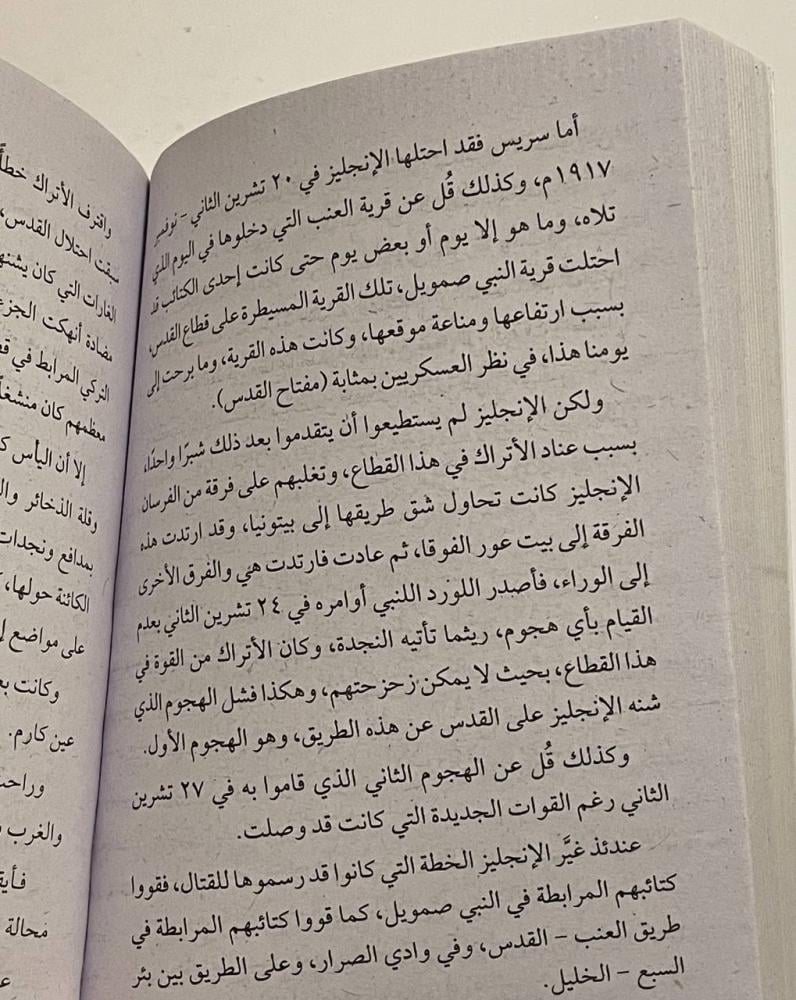 أما سريس فقد احتلها الإنجليز في ٢٠ تشرين الثاني – نوفمبر
١٩١٧م، وكذلك قُل عن قرية العنب التي دخلوها في اليوم الذي
تلاه، وما هو إلا يوم أو بعض يوم حتى كانت إحدى الكتائب قد
احتلت قرية النبي صمويل، تلك القرية المسيطرة على قطاع القدس،
بسبب ارتفاعها ومناعة موقعها، وكانت هذه القرية، وما برحت إلى
يومنا هذا، في نظر العسكريين بمثابة (مفتاح القدس).
ولكن الإنجليز لم يستطيعوا أن يتقدموا بعد ذلك شبرًا واحدًا،
بسبب عناد الأتراك في هذا القطاع، وتغلبهم على فرقة من الفرسان
الإنجليز كانت تحاول شق طريقها إلى بيتونيا، وقد ارتدت هذه
الفرقة إلى بيت عور الفوقا، ثم عادت فارتدت هي والفرق الأخرى
إلى الوراء، فأصدر اللورد اللنبي أوامره في ٢٤ تشرين الثاني بعدم
القيام بأي هجوم، ريثما تأتيه النجدة، وكان الأتراك من القوة في
هذا القطاع، بحيث لا يمكن زحزحتهم، وهكذا فشل الهجوم الذي
شنه الإنجليز على القدس عن هذه الطريق، وهو الهجوم الأول.
وكذلك قُل عن الهجوم الثاني الذي قاموا به في ٢٧ تشرين
الثاني رغم القوات الجديدة التي كانت قد وصلت.
عندئذ غيَّر الإنجليز الخطة التي كانوا قد رسموها للقتال، فقووا
كتائبهم المرابطة في النبي صمويل، كما قووا كتائبهم المرابطة في
طريق العنب – القدس، وفي وادي الصرار، وعلى الطريق بين بئر
السبع – الخليل.
واقترف الأتراك خطأً
سبقت احتلال القدس،
الغارات التي كان يشنها
مضادة أنهكت
التركي المرابط في
معظمهم كان
إلا أن اليأس
وقلة الذخائر
بمدافع ونجدات
الكائنة حولها،
على مواضع
وكانت
عين كارم.
والغرب
محالة